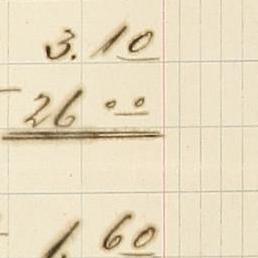 3.10
26 00
1.60